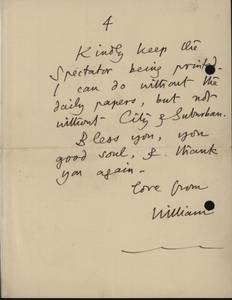 4
Kindly keep the
Spectator being printed.
I can do without the
daily papers, but not
without City & Suburban.
Bless you, you
good soul, & thank
you again -
love from
William